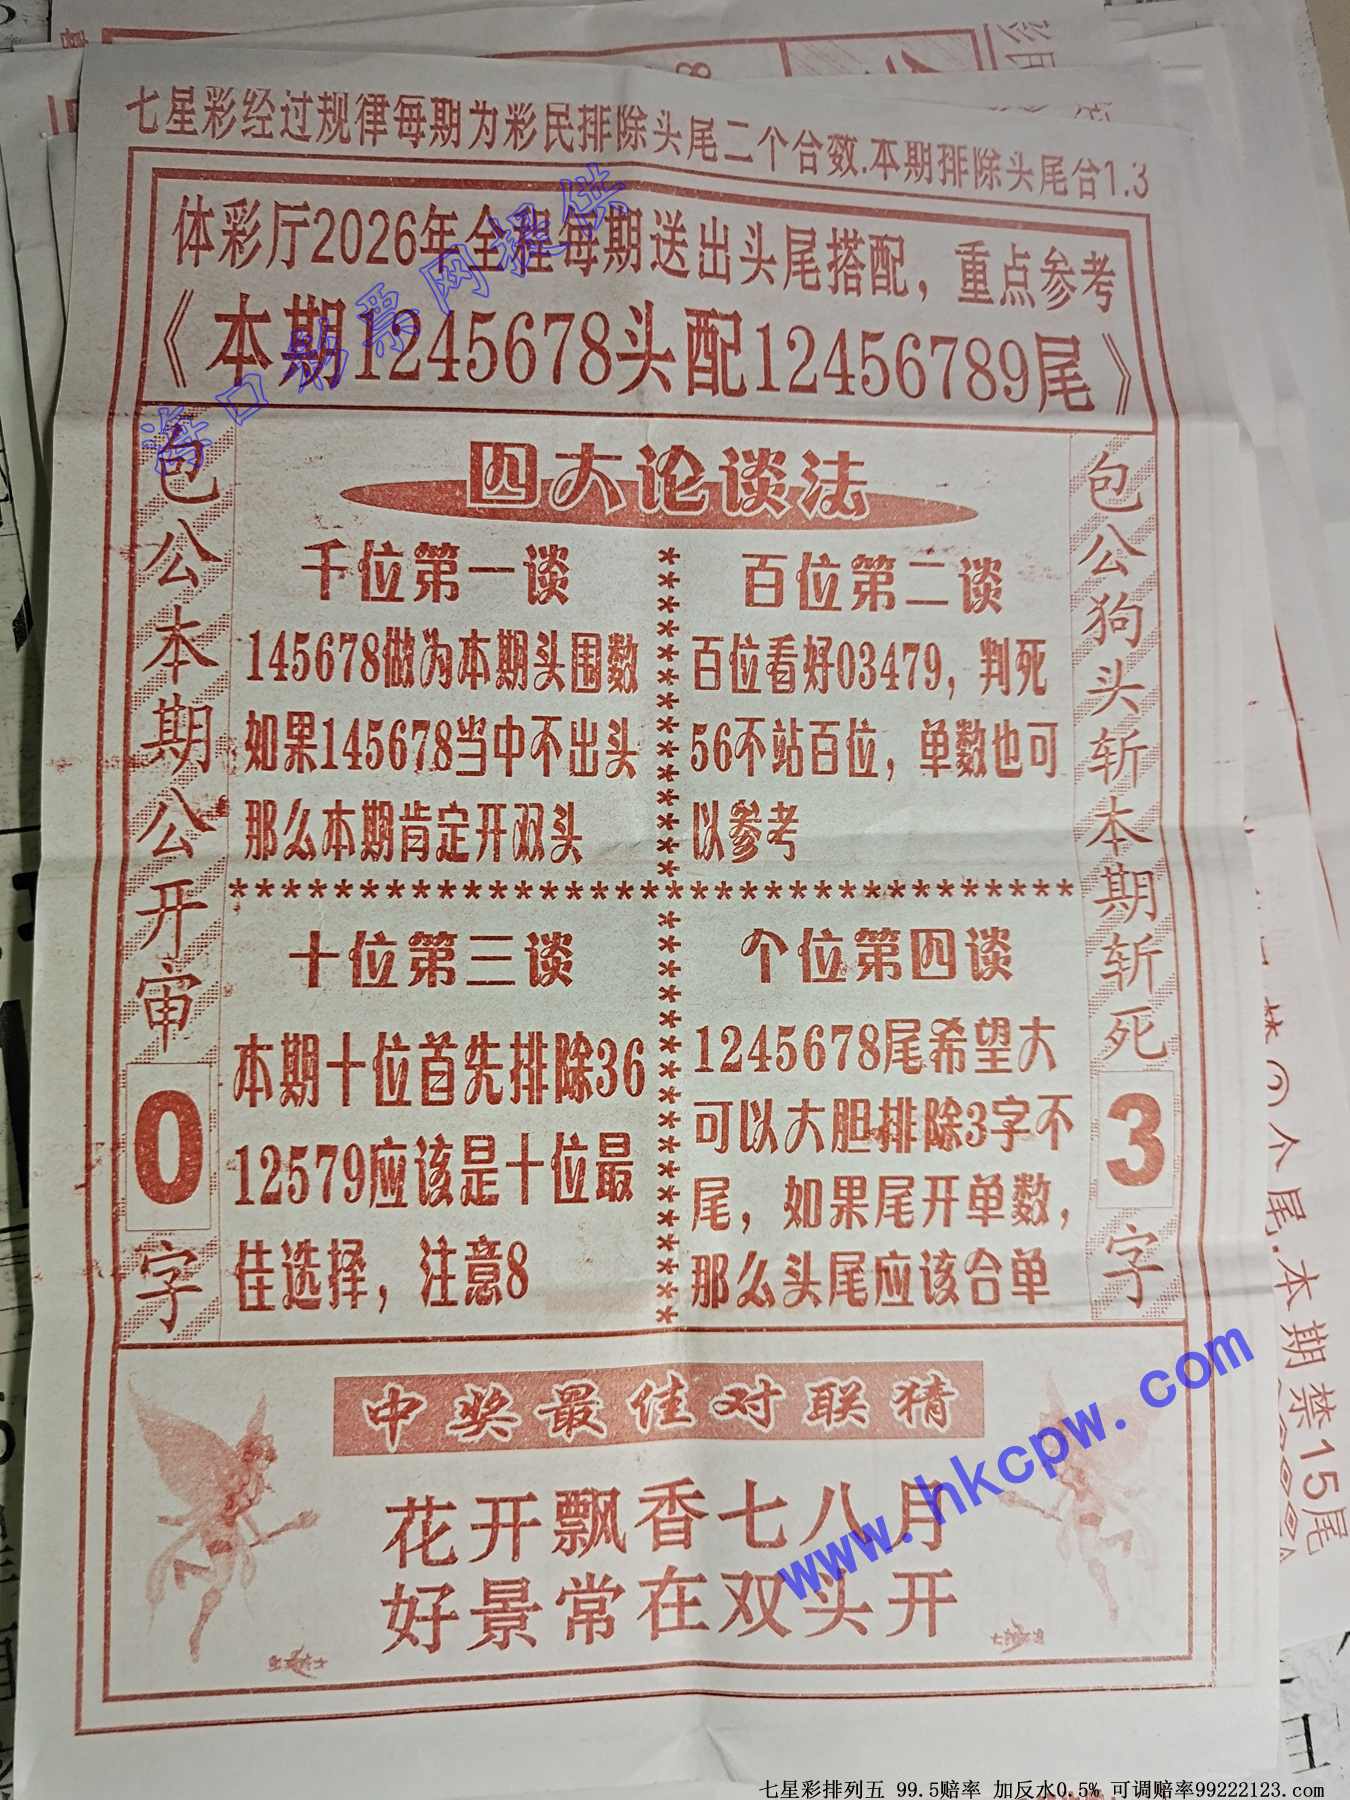 七星彩经过规律每期为彩民排除头尾二个合数.本期排除头尾合1.3
体彩厅2026年全程每期送出头尾搭配，重点参考
《本期1245678头配12456789尾》
包公本期公开审0字
四大论谈法
千位第一谈
145678做为本期头围数
如果145678当中不出头
那么本期肯定开双头
百位第二谈
百位看好03479，判死
56不站百位，单数也可
以参考
十位第三谈
本期十位首先排除36
12579应该是十位最
佳选择，注意8
个位第四谈
1245678尾希望大
可以大胆排除3字不
尾，如果尾开单数，
那么头尾应该合单
包公狗头斩本期斩死3字
中奖最佳对联猜
花开飘香七八月
好景常在双头开
海口彩票网提供
www.hkcpw.com
个尾.本期禁15尾
七星彩排列五 99.5赔率 加反水0.5% 可调赔率99222123.com